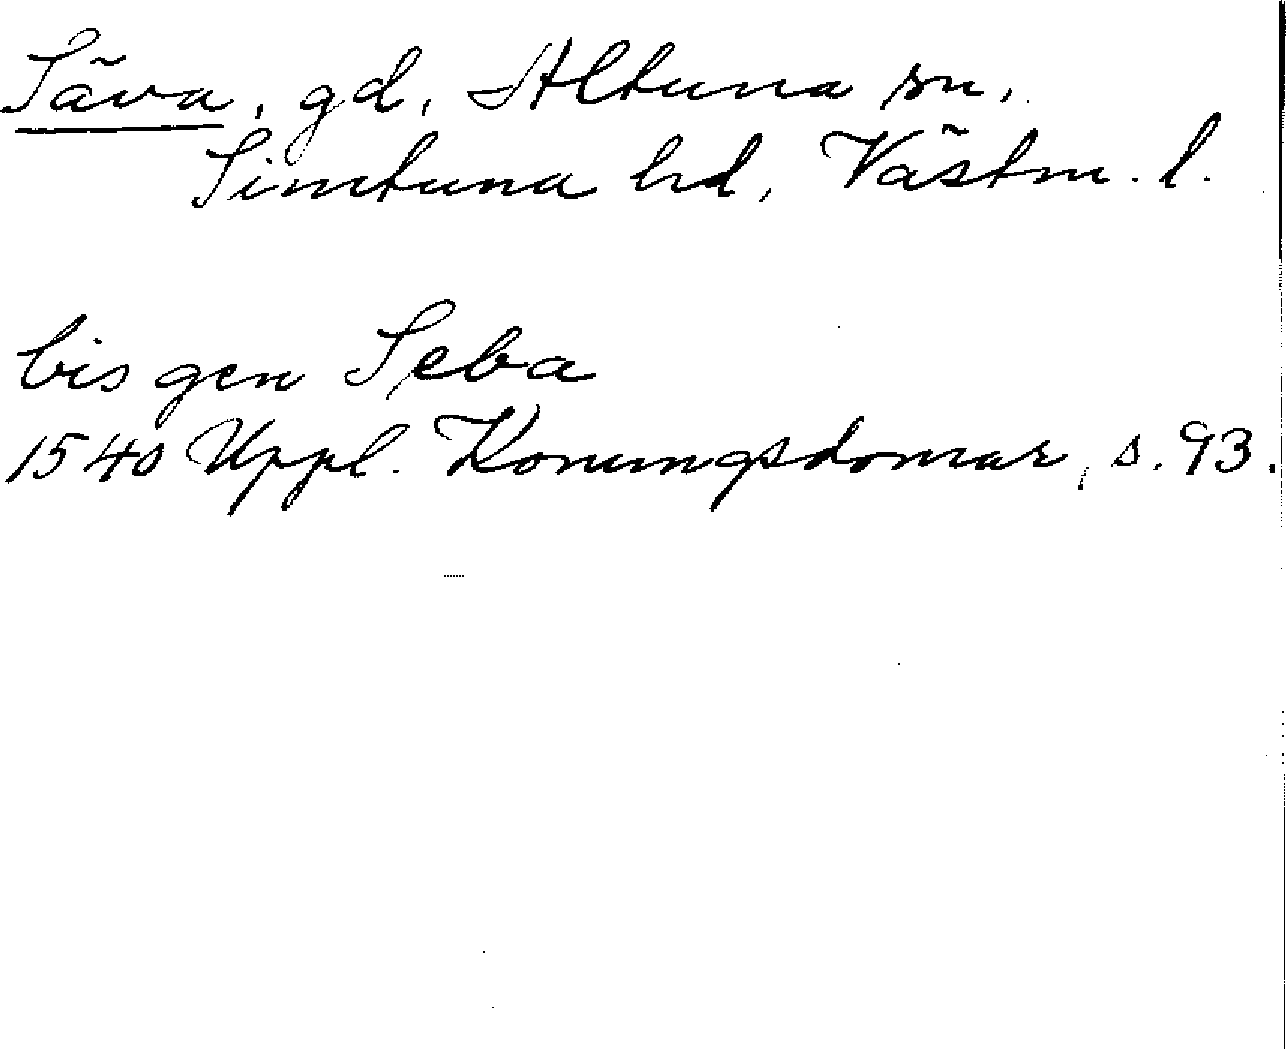 Säva, gd, Altuna sn,
Simtuna hd, Västm. l.
bis gen Seba
1540 Uppl. Konungsdomar, s. 93.